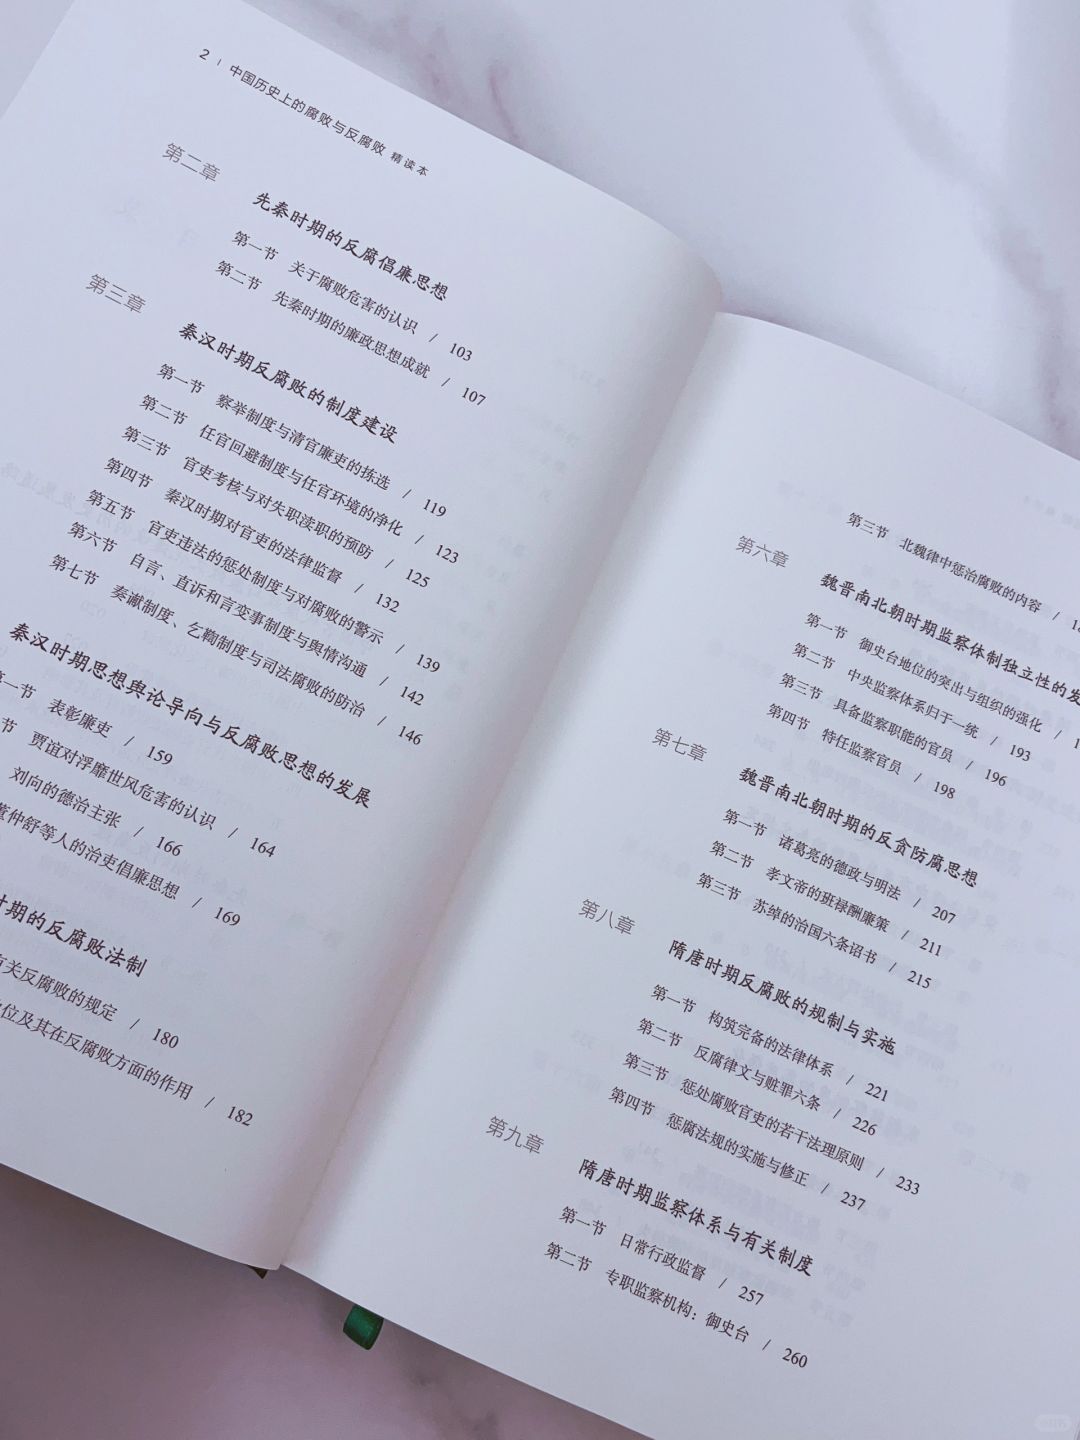 2 | 中国历史上的腐败与反腐败 精读本
第二章
先秦时期的反腐倡廉思想
第一节 关于腐败危害的认识 / 103
第二节 先秦时期的廉政思想成就 / 107
第三章
秦汉时期反腐败的制度建设
第一节 察举制度与清官廉吏的拣选 / 119
第二节 任官回避制度与任官环境的净化 / 123
第三节 官吏考核与对失职渎职的预防 / 125
第四节 秦汉时期对官吏的法律监督 / 132
第五节 官吏违法的惩处制度与对腐败的警示 / 139
第六节 自言、直诉和言变事制度与舆情沟通 / 142
第七节 奏谳制度、乞鞫制度与司法腐败的防治 / 146
秦汉时期思想舆论导向与反腐败思想的发展
第一节 表彰廉吏 / 159
节 贾谊对浮靡世风危害的认识 / 164
刘向的德治主张 / 166
董仲舒等人的治吏倡廉思想 / 169
时期的反腐败法制
有关反腐败的规定 / 180
位及其在反腐败方面的作用 / 182
第三节 北魏律中惩治腐败的内容 /
第六章
魏晋南北朝时期监察体制独立性的发
第一节 御史台地位的突出与组织的强化 /
第二节 中央监察体系归于一统 / 193
第三节 具备监察职能的官员 / 196
第四节 特任监察官员 / 198
第七章
魏晋南北朝时期的反贪防腐思想
第一节 诸葛亮的德政与明法 / 207
第二节 孝文帝的班禄酬廉策 / 211
第三节 苏绰的治国六条诏书 / 215
第八章
隋唐时期反腐败的规制与实施
第一节 构筑完备的法律体系 / 221
第二节 反腐律文与赃罪六条 / 226
第三节 惩处腐败官吏的若干法理原则 / 233
第四节 惩腐法规的实施与修正 / 237
第九章
隋唐时期监察体系与有关制度
第一节 日常行政监督 / 257
第二节 专职监察机构：御史台 / 260